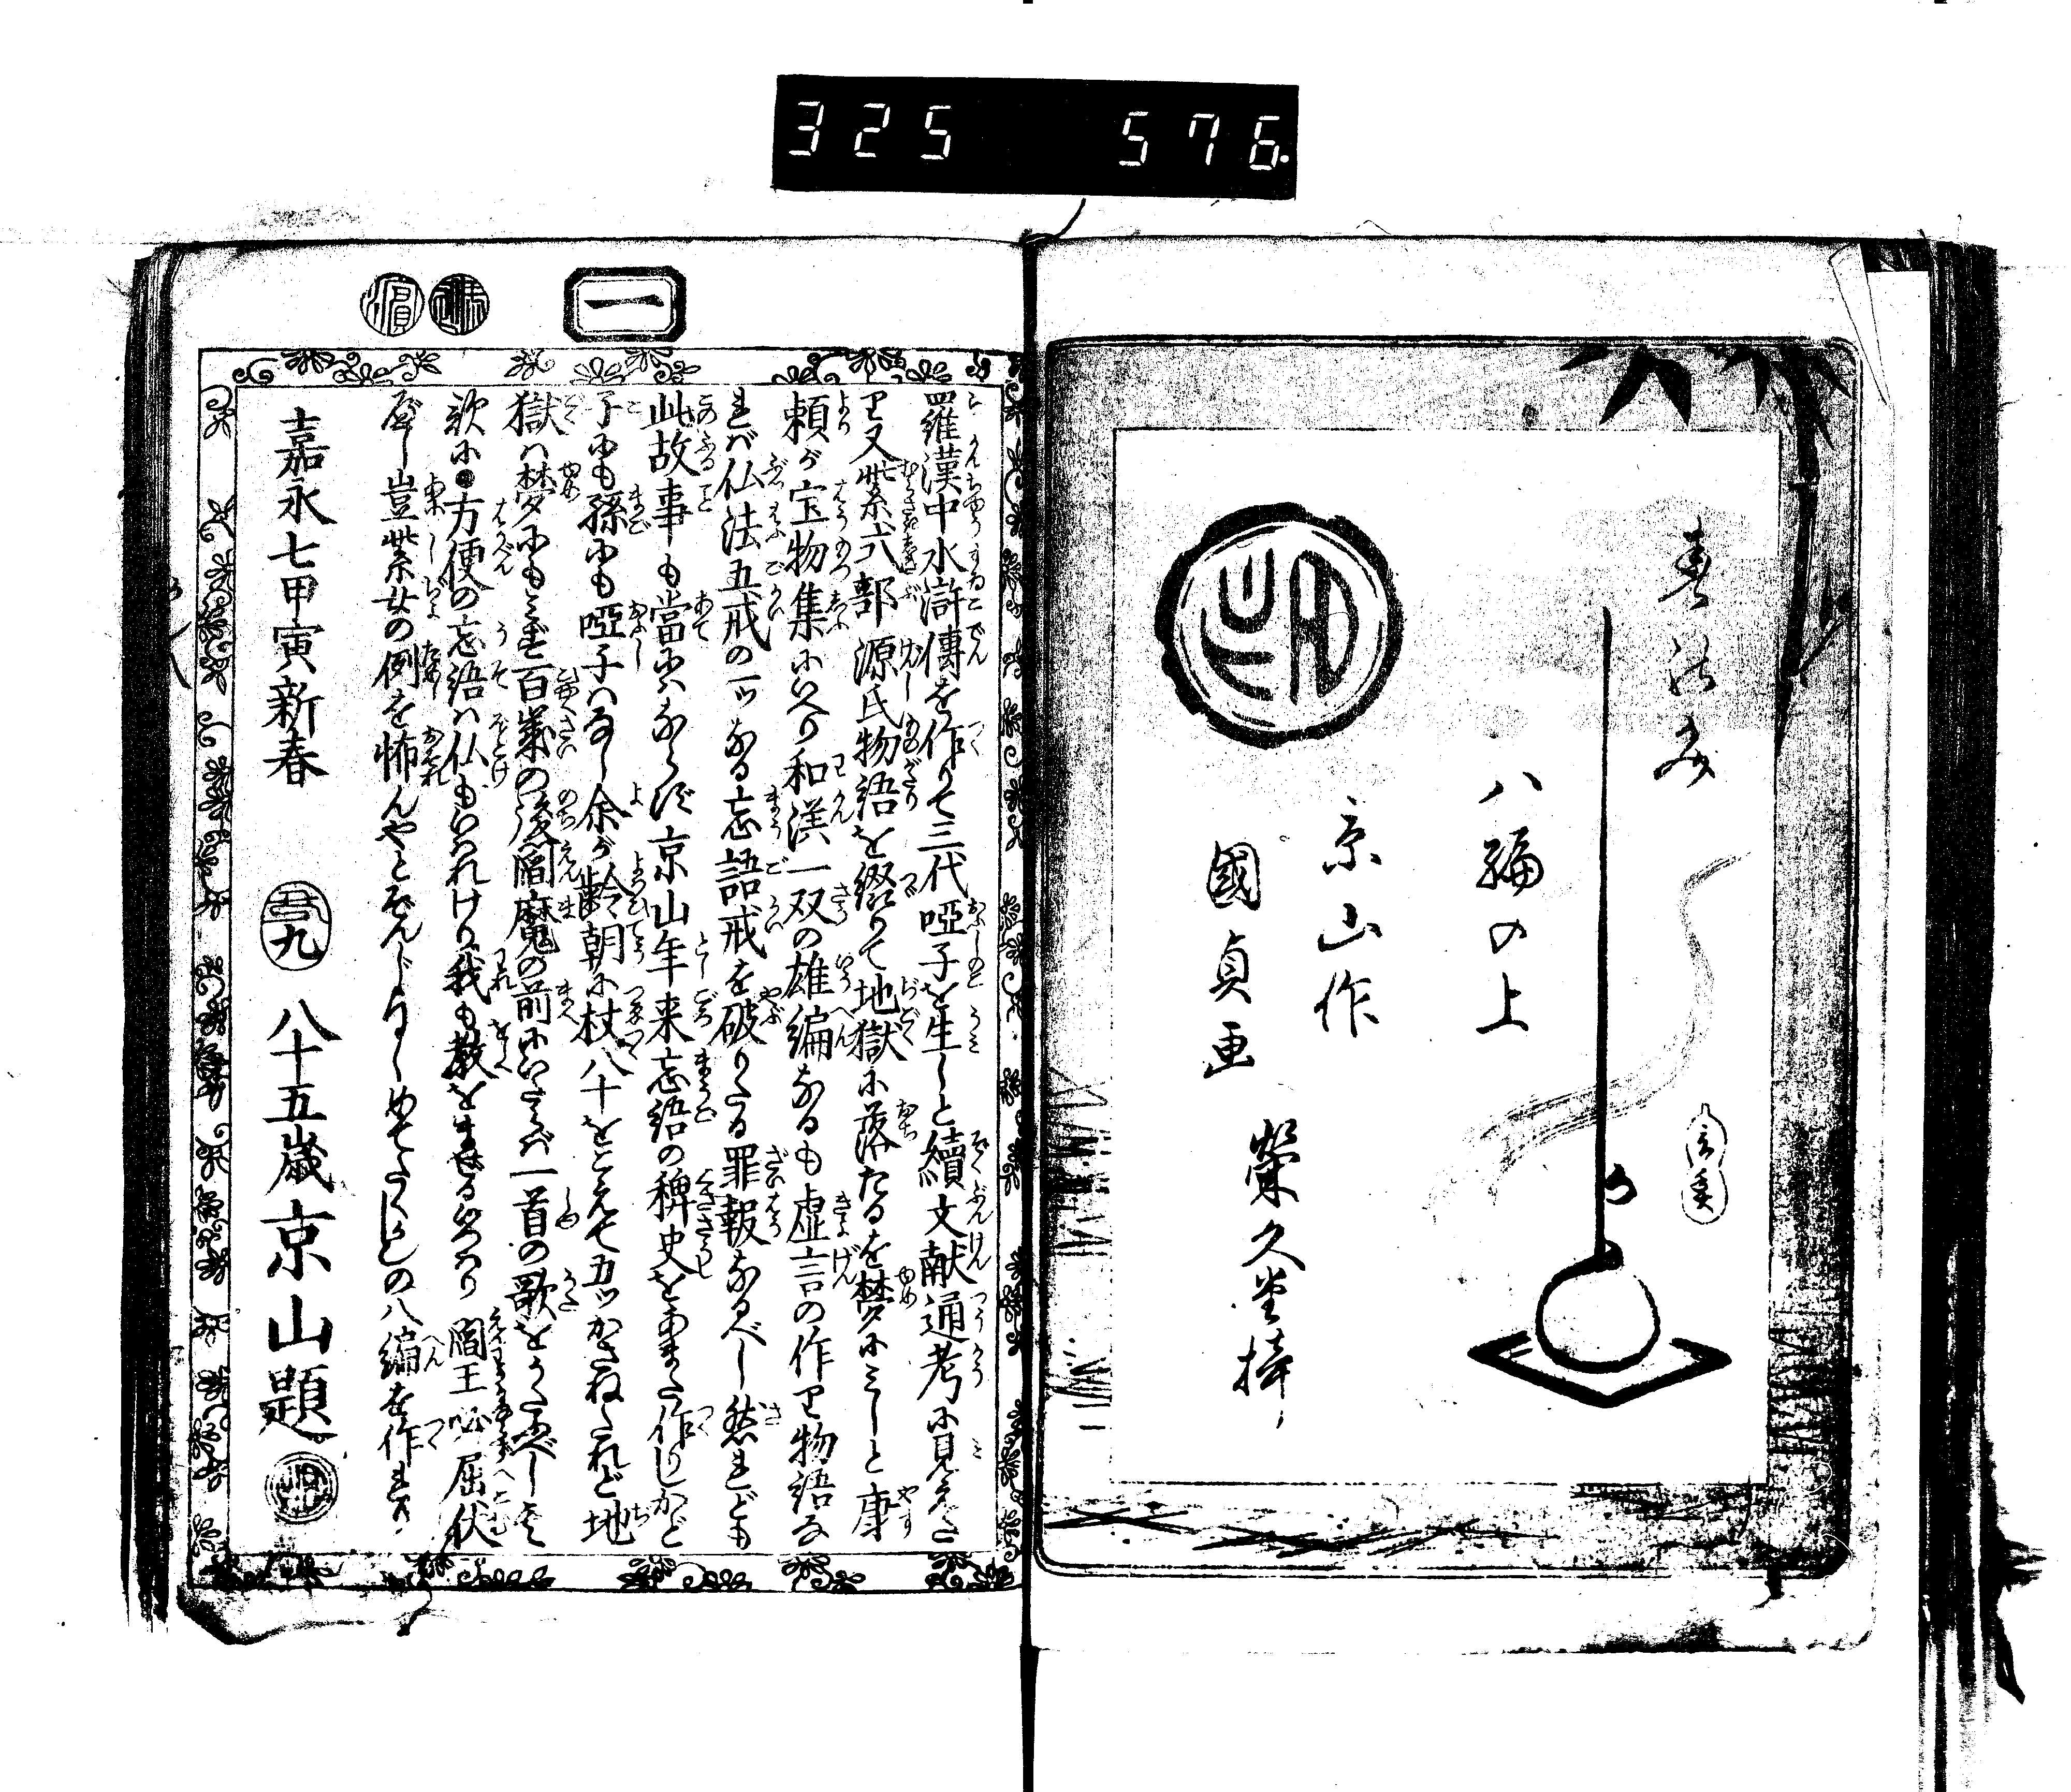 325 576
八編の上
京山作
國貞画
榮久堂梓
一
羅漢中水滸傳を作りて三代啞子を生しと續文献通考に見えた
り又紫式部源氏物語を綴りて地獄に落たるを夢にみしと康
頼が宝物集にいへり和漢一双の雄編なるも虚言の作り物語な
れば仏法五戒の一ツなる忘語戒を破りたる罪報なるべし然れども
此故事も當にはならず京山年来忘語の稗史をあまた作りしかど
子にも孫にも啞子はなし余が齢朝に杖つく八十をこえて五ツかさねたれど地
獄は夢にもみず百歳の後閻魔の前にいたらば一首の歌をうたふべしそ
歌に●方便の忘語は仏もいはれけり我も教をまする いつはり 閻王必屈伏
豈紫女の例を怖んやとぞんじ めでたくの八編を作れり
嘉永七甲寅新春
八十五歳京山題